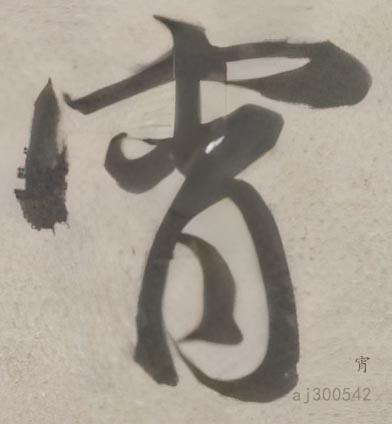 宵
宵
aj300542